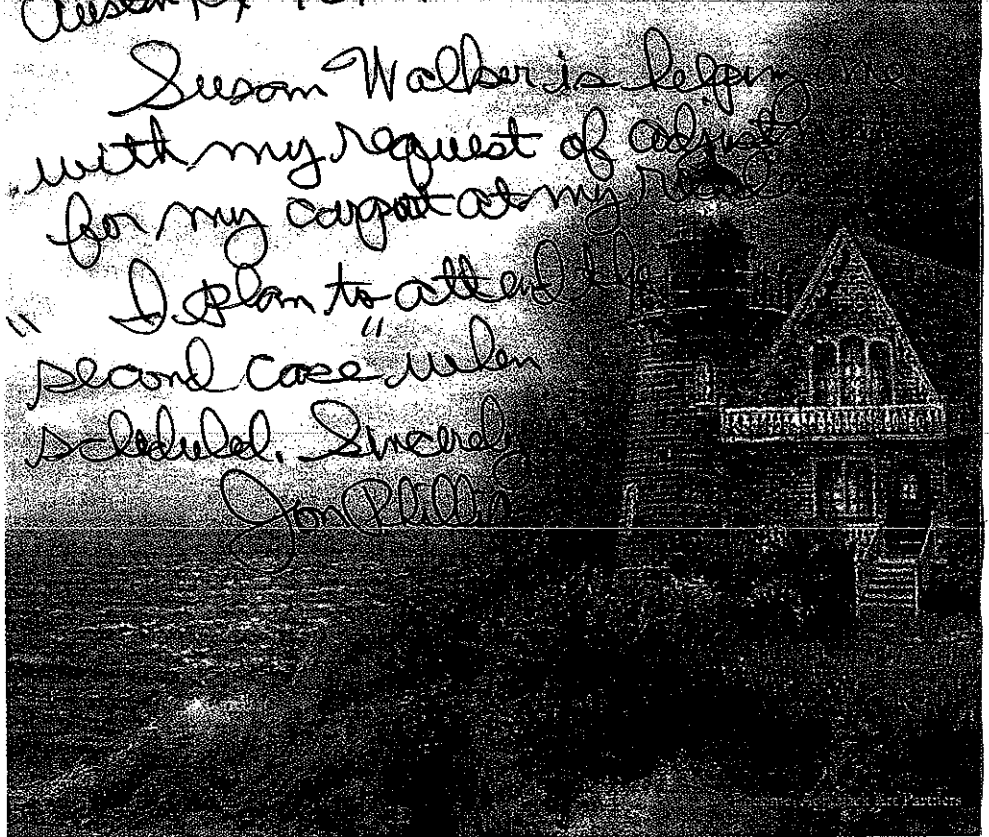 Austin, Tx
Susan Walker is helping me
with my request of adjust
for my carport at my
" I plan to attend the
second case" when
scheduled. Sincerely
Jon Phillip
Art Partners